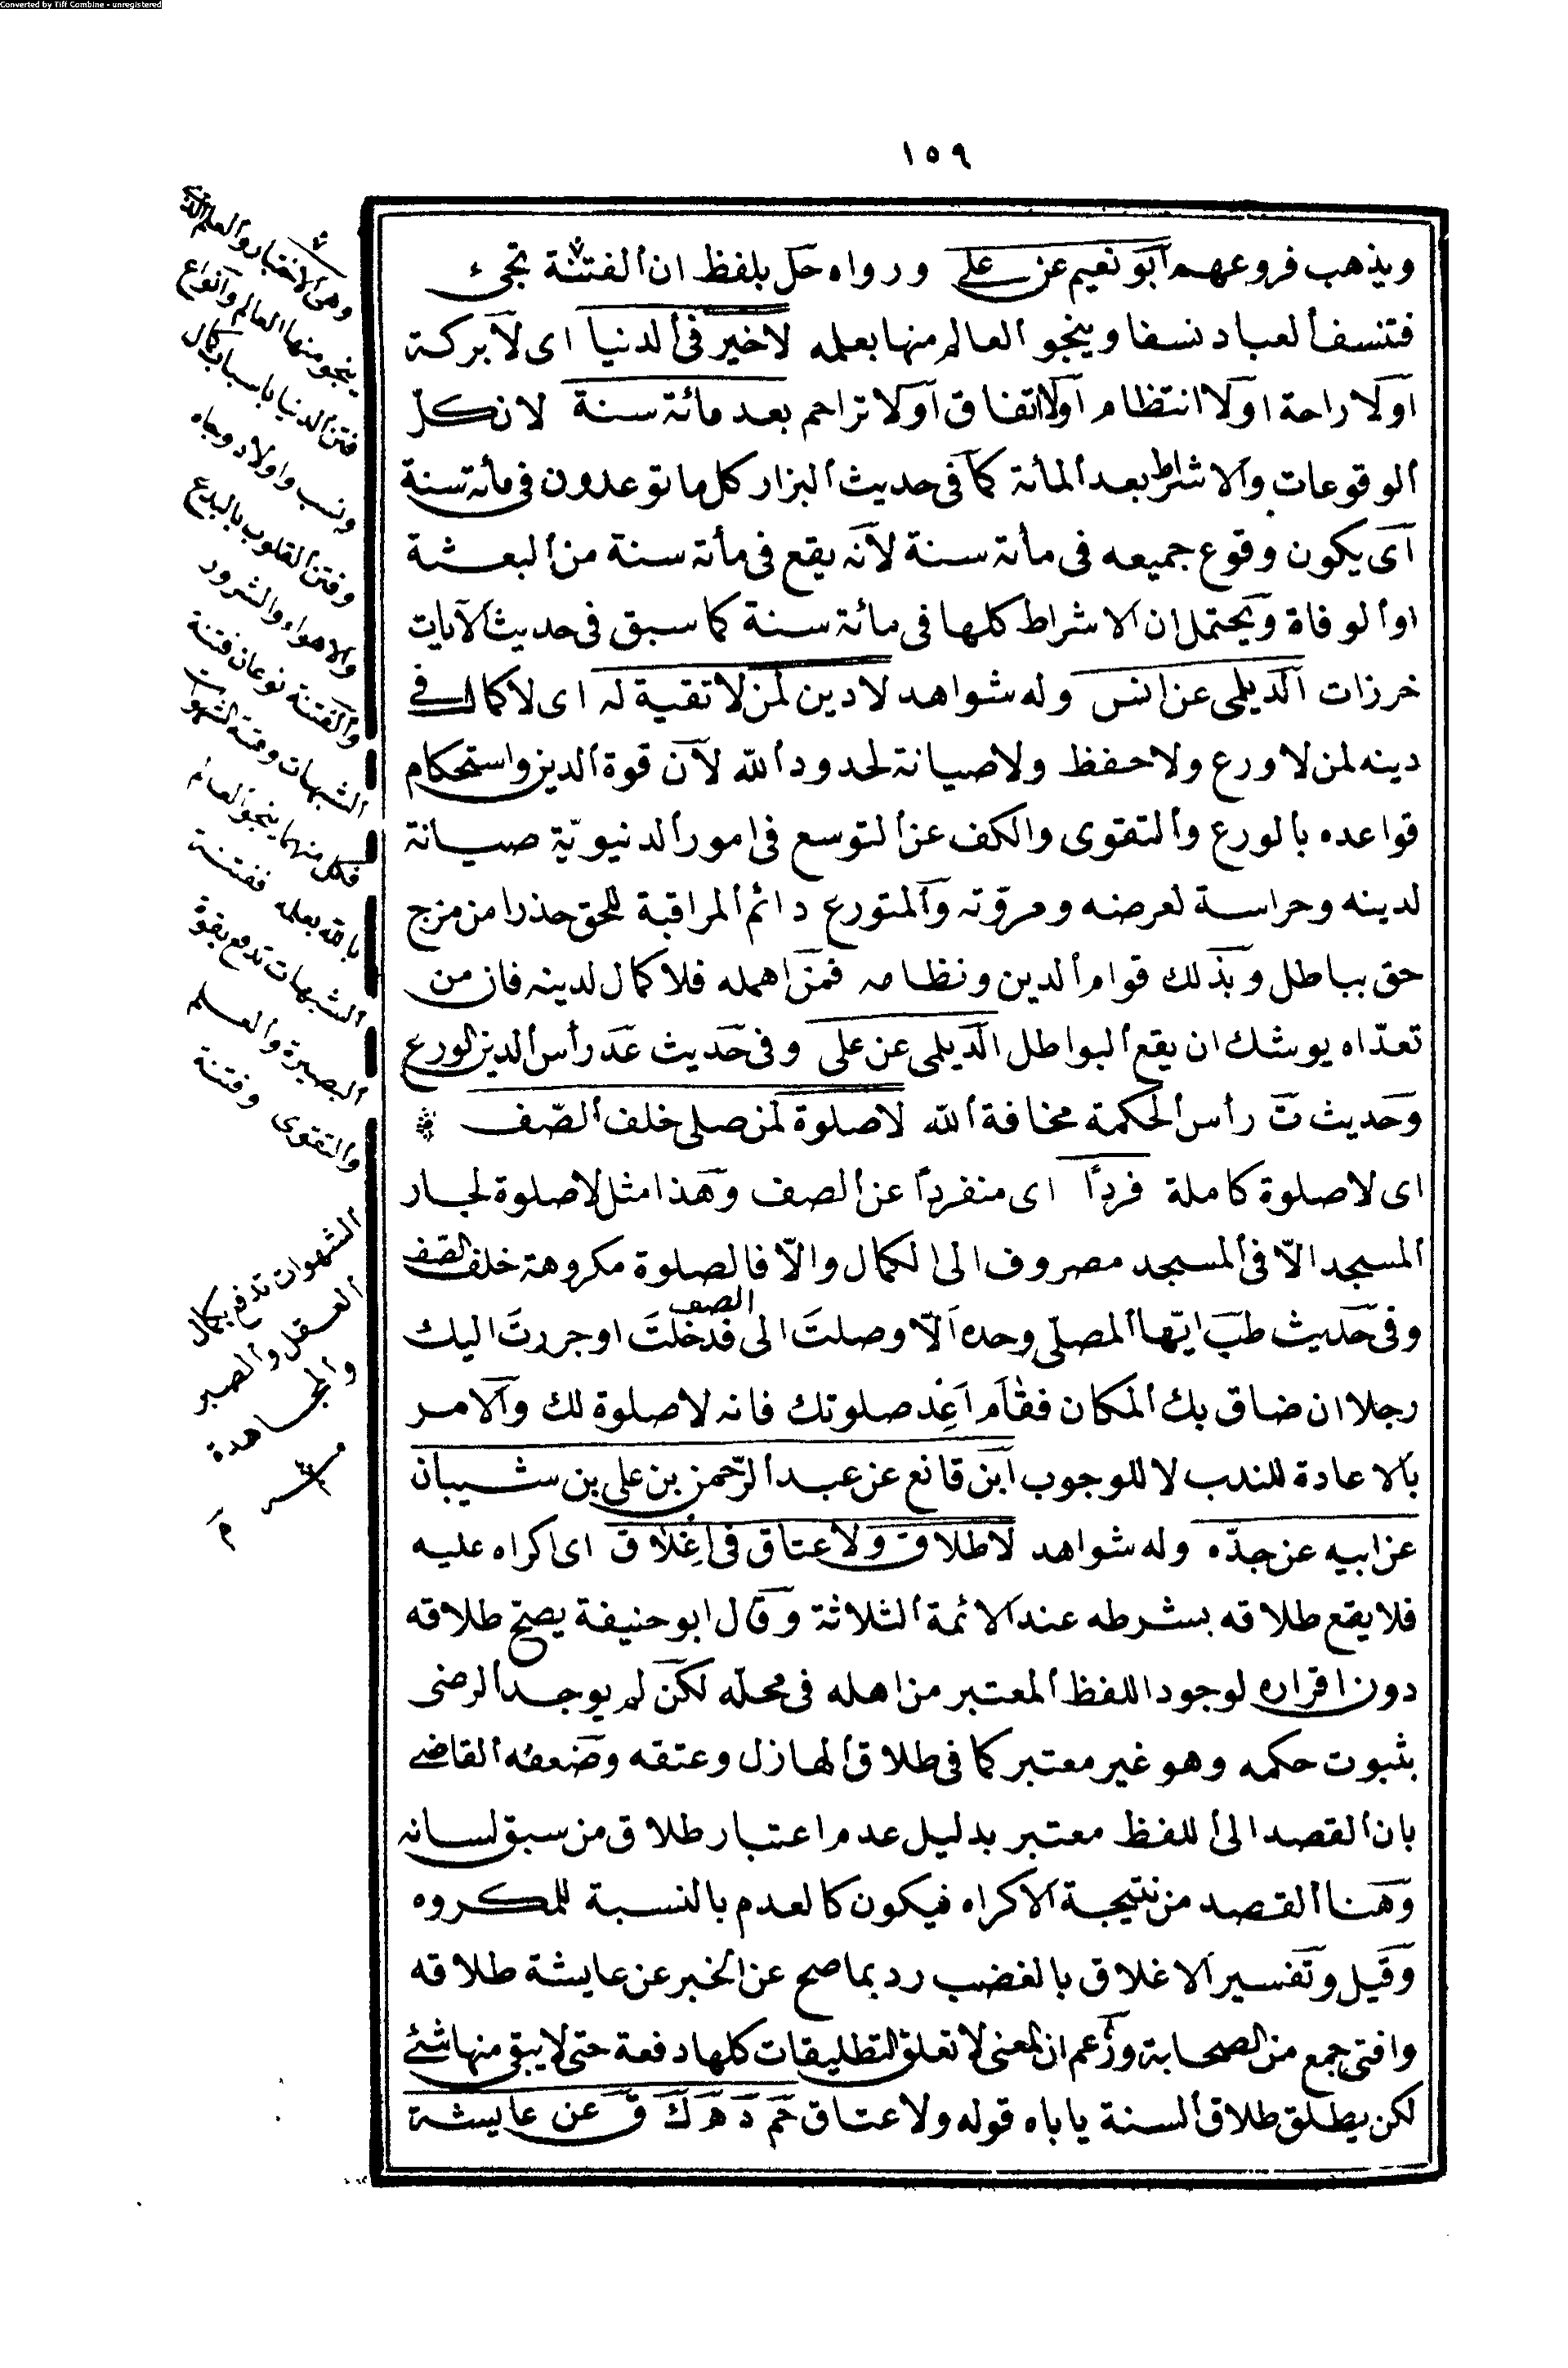 Converted by Tiff Combine - unregistered
١٥٩
ويذهب فروعهم ابو نعيم عن على ورواه حل بلفظ ان الفتنة تجىء
فتنسف العباد نسفا وينجو العالم منها بعلمه لاخير فى الدنيا اى لابركة
اولا راحة اولا انتظام اولا اتفاق اولا تراحم بعد مائة سنة لان كل
الوقوعات والاشراط بعد المأة كما فى حديث البزار كل ما توعدون فى مأة سنة
اى يكون وقوع جميعه فى مأة سنة لانه يقع فى مأة سنة من البعثة
او الوفاة ويحتمل ان الاشراط كلها فى مائة سنة كما سبق فى حديث الآيات
خرزات الديلمى عن انس وله شواهد لادين لمن لاتقية له اى لاكمال فى
دينه لمن لاورع ولاحفظ ولاصيانة لحدود الله لان قوة الدين واستحكام
قواعده بالورع والتقوى والكف عن التوسع فى امور الدنيوية صيانة
لدينه وحراسة لعرضه ومروّته والمتورع دائم المراقبة للحق حذرا من مزج
حق بباطل وبذلك قوام الدين ونظامه فمن اهمله فلا كمال لدينه فان من
تعدّاه يوشك ان يقع البواطل الديلمى عن على وفى حديث عد رأس الدين الورع
وحديث ت رأس الحكمة مخافة الله لاصلوة لمن صلى خلف الصّف
اى لاصلوة كاملة فردًا اى منفردًا عن الصف وهذا مثل لاصلوة لجار
المسجد الّا فى المسجد مصروف الى الكمال والّا فالصلوة مكروهة خلف الصف
وفى حديث طب ايّها المصلّى وحده الّا وصلتَ الى الصف فدخلتَ او جررتَ اليك
رجلا ان ضاق بك المكان فقام اَعِد صلوتك فانه لاصلوة لك والامر
بالاعادة للندب لا للوجوب ابن قانع عن عبد الرّحمن بن على بن شيبان
عن ابيه عن جدّه وله شواهد لاطلاق ولاعتاق فى اِغلاق اى اكراه عليه
فلا يقع طلاقه بشرطه عند الائمة الثلاثة وقال ابو حنيفة يصحّ طلاقه
دون اقراره لوجود اللفظ المعتبر من اهله فى محلّه لكن لم يوجد الرضى
بثبوت حكمه وهو غير معتبر كما فى طلاق الهازل وعتقه وضعفه القاضى
بان القصد الى اللفظ معتبر بدليل عدم اعتبار طلاق من سبق لسانه
وهنا القصد من نتيجة الاكراه فيكون كالعدم بالنسبة للمكروه
وقيل وتفسير الاغلاق بالغضب رد بما صح عن الخبر عن عايشة طلاقه
وافتى جمع من الصحابة وزعم ان المعنى لاتغلق التطليقات كلها دفعة حتى لا يبقى منها شئ
لكن يطلق طلاق السنة ياباه قوله ولاعتاق حم د ه ك ق عن عايشة
وهى الاختبار والعلم الذى
ينجو منها العالم وانواع
فتن الدنيا باسباب كمال
ونسب واولاد وجاه
وفتن القلوب بالبدع
والاهواء والشرور
والفتنة نوعان فتنة
الشبهات وفتنة الشهوات
فكل منهما ينجو العالم
بالله بعلمه ففتنة
الشبهات تدفع بقوة
البصيرة والعلم
والتقوى وفتنة
الشهوات تدفع بكمال
العقل والصبر
والمجاهدة